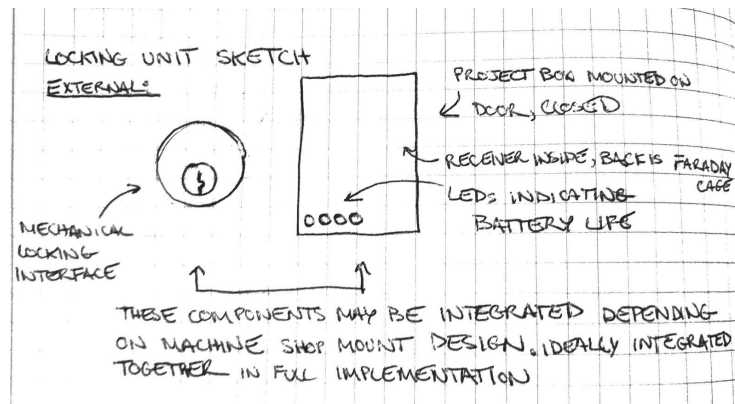 LOCKING UNIT SKETCH
EXTERNAL:
PROJECT BOX MOUNTED ON
DOOR, CLOSED
RECEIVER INSIDE, BACK IS FARADAY
CAGE
LEDs INDICATING
BATTERY LIFE
MECHANICAL
LOCKING
INTERFACE
THESE COMPONENTS MAY BE INTEGRATED DEPENDING
ON MACHINE SHOP MOUNT DESIGN. IDEALLY INTEGRATED
TOGETHER IN FULL IMPLEMENTATION